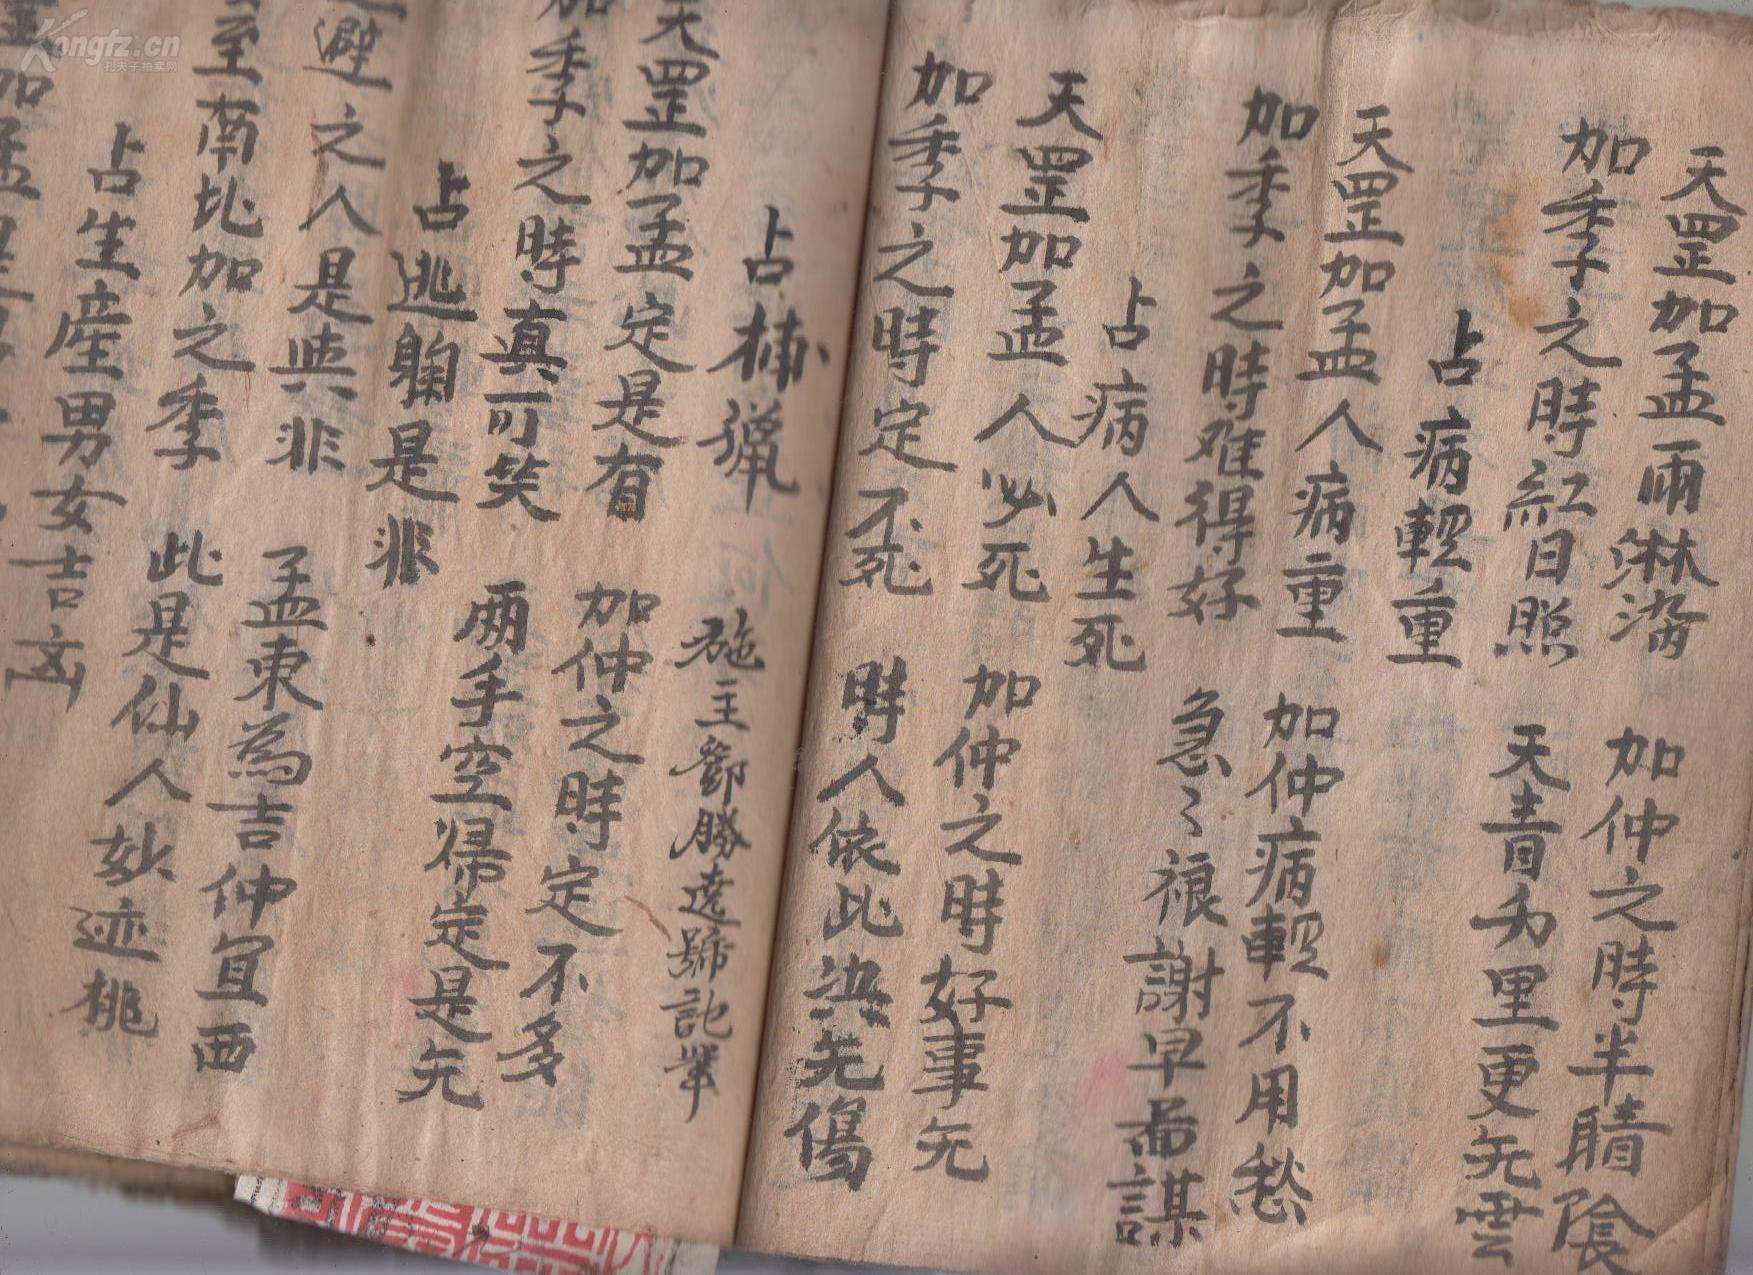 天罡加孟雨淋洛 加仲之時半晴陰
加季之時紅日照 天青萬里更无雲
占病輕重
天罡加孟人病重 加仲病輕不用愁
加季之時难得好 急〻禳謝早啚謀
占病人生死
天罡加孟人必死 加仲之時好事无
加季之時定不死 時人依此決无傷
占捕獵 施主鄧勝達號記筆
天罡加孟定是有 加仲之時定不多
加季之時真可笑 兩手空歸定是无
占逃躲是非
避之人是與非 孟東為吉仲宜西
至南北加之季 此是仙人妙迹桃
占生產男女吉凶
加孟
Kongfz.cn
孔夫子拍卖网